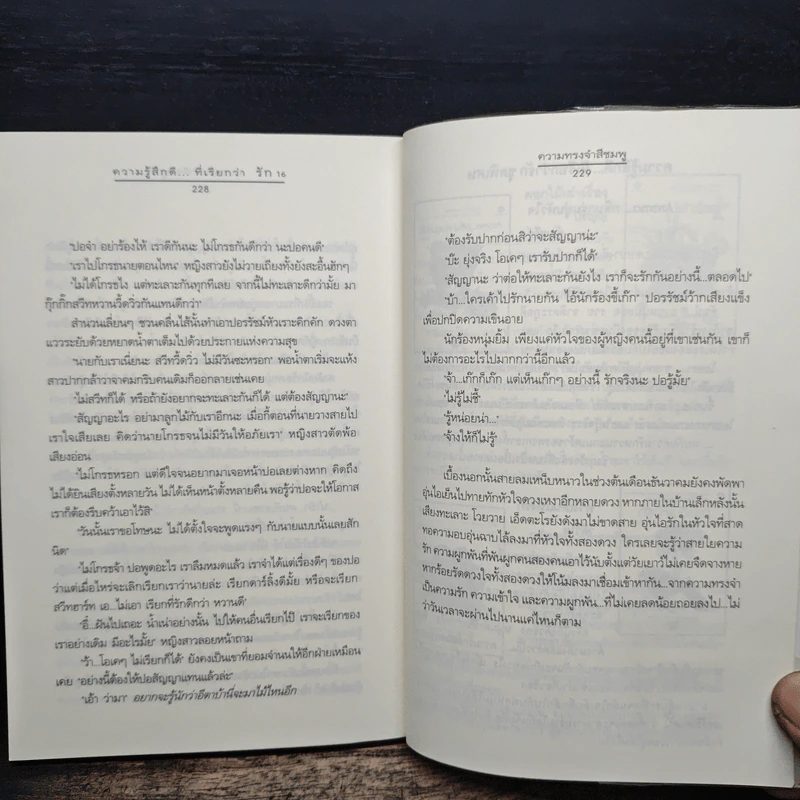 ความรู้สึกดี... ที่เรียกว่า รัก 16
228
"ปอจ๋า อย่าร้องไห้ เราดีกันนะ ไม่โกรธกันดีกว่า นะปอคนดี"
"เราไปโกรธนายตอนไหน" หญิงสาวยังไม่วายเถียงทั้งยังสะอื้นฮักๆ
"ไม่ได้โกรธไง แต่ทะเลาะกันทุกทีเลย จากนี้ไม่ทะเลาะดีกว่ามั้ย มา
กุ๊กกิ๊กสวีทหวานวี้ดวิ่วกันแทนดีกว่า"
สำนวนเลี่ยนๆ ชวนคลื่นไส้นั้นทำเอาปอรรัชม์หัวเราะคิกคัก ดวงตา
แวววระยับด้วยหยาดน้ำตาเต็มไปด้วยประกายแห่งความสุข
"นายกับเราเนี่ยนะ สวีทวี้ดวิ่ว ไม่มีวันซะหรอก" พอน้ำตาเริ่มจะแห้ง
สาวปากกล้าวาจาคมกริบคนเดิมก็ออกลายเช่นเคย
"ไม่สวีทก็ได้ หรือถ้ายังอยากจะทะเลาะกันก็ได้ แต่ต้องสัญญานะ"
"สัญญาอะไร อย่ามาลูกไม้กับเราอีกนะ เมื่อกี้ตอนที่นายวางสายไป
เราใจเสียเลย คิดว่านายโกรธจนไม่มีวันให้อภัยเรา" หญิงสาวตัดพ้อ
เสียงอ่อน
"ไม่โกรธหรอก แต่ดีใจจนอยากมาเจอหน้าปอเลยต่างหาก คิดถึง
ไม่ได้ยินเสียงตั้งหลายวัน ไม่ได้เห็นหน้าตั้งหลายคืน พอรู้ว่าปอจะให้โอกาส
เราก็ต้องรีบคว้าเอาไว้สิ"
"วันนั้นเราขอโทษนะ ไม่ได้ตั้งใจจะพูดแรงๆ กับนายแบบนั้นเลยสัก
นิด"
"ไม่โกรธจ้า ปอพูดอะไร เราลืมหมดแล้ว เราจำได้แต่เรื่องดีๆ ของปอ
ว่าแต่เมื่อไหร่จะเลิกเรียกเราว่านายล่ะ เรียกดาร์ลิ้งดีมั้ย หรือจะเรียก
สวีทฮาร์ท เอ...ไม่เอา เรียกที่รักดีกว่า หวานดี"
"อี๋...ฝันไปเถอะ น้ำเน่าอย่างนั้น ไปให้คนอื่นเรียกไป๊ เราจะเรียกของ
เราอย่างเดิม มีอะไรมั้ย" หญิงสาวลอยหน้าถาม
"ว้า...โอเคๆ ไม่เรียกก็ได้" ยังคงเป็นเขาที่ยอมจำนนให้อีกฝ่ายเหมือน
เคย "อย่างนี้ต้องให้ปอสัญญาแทนแล้วล่ะ"
"เอ้า ว่ามา" อยากจะรู้นักว่าอีตาบ้านี่จะมาไม้ไหนอีก
ความทรงจำสีชมพู
229
"ต้องรับปากก่อนสิว่าจะสัญญาน่ะ"
"บ๊ะ ยุ่งจริง โอเคๆ เรารับปากก็ได้"
"สัญญานะ ว่าต่อให้ทะเลาะกันยังไง เราก็จะรักกันอย่างนี้...ตลอดไป"
"บ้า...ใครเค้าไปรักนายกัน ไอ้นักร้องขี้เก๊ก" ปอรรัชม์ว้ากเสียงแข็ง
เพื่อปกปิดความเขินอาย
นักร้องหนุ่มยิ้ม เพียงแค่หัวใจของผู้หญิงคนนี้อยู่ที่เขาเช่นกัน เขาก็
ไม่ต้องการอะไรไปมากกว่านี้อีกแล้ว
"จ้า...เก๊กก็เก๊ก แต่เห็นเก๊กๆ อย่างนี้ รักจริงนะ ปอรู้มั้ย"
"ไม่รู้ไม่ชี้"
"รู้หน่อยน่า..."
"จ้างให้ก็ไม่รู้"
เบื้องนอกนั้นสายลมเหน็บหนาวในช่วงต้นเดือนธันวาคมยังคงพัดพา
อุ่นไอเย็นไปทายทักหัวใจดวงเหงาอีกหลายดวง หากภายในบ้านเล็กหลังนั้น
เสียงทะเลาะ โวยวาย เอ็ดตะโรยังดังมาไม่ขาดสาย อุ่นไอรักในหัวใจที่สาด
ทอความอบอุ่นฉาบไล้ลงมาที่หัวใจทั้งสองดวง ใครเลยจะรู้ว่าสายใยความ
รัก ความผูกพันที่พันผูกคนสองคนเอาไว้นับตั้งแต่วัยเยาว์ไม่เคยจืดจางหาย
หากร้อยรัดดวงใจทั้งสองดวงให้โน้มลงมาเชื่อมเข้าหากัน...จากความทรงจำ
เป็นความรัก ความเข้าใจ และความผูกพัน...ที่ไม่เคยลดน้อยถอยลงไป...ไม่
ว่าวันเวลาจะผ่านไปนานแค่ไหนก็ตาม